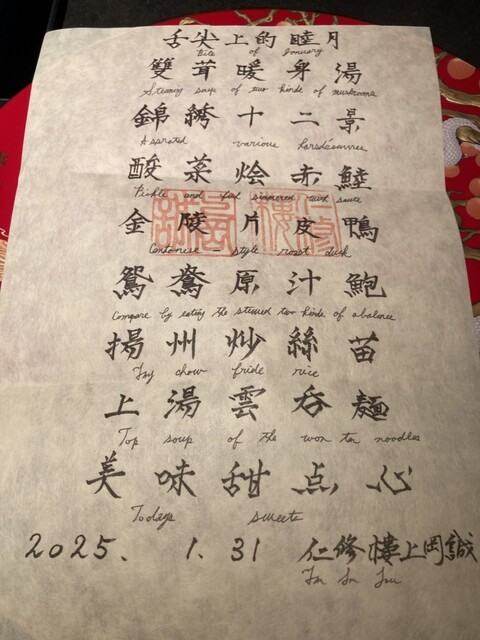 舌尖上的睦月
Bite of January
雙茸暖身湯
Steaming soup of two kinds of mushrooms
錦綉十二景
Assorted various horsdéauvres
酸菜烩赤鯥
Pickle and fish simmered with sauce
金陵片皮鴨
Cantonese - style roast duck
鴛鴦原汁鮑
Compare by eating the stewed two kinds of abalone
揚州炒絲苗
Fry chow fride rice
上湯雲吞麺
Top soup of the won ton noodles
美味甜点心
Todays sweets
2025. 1. 31 仁修樓上岡誠